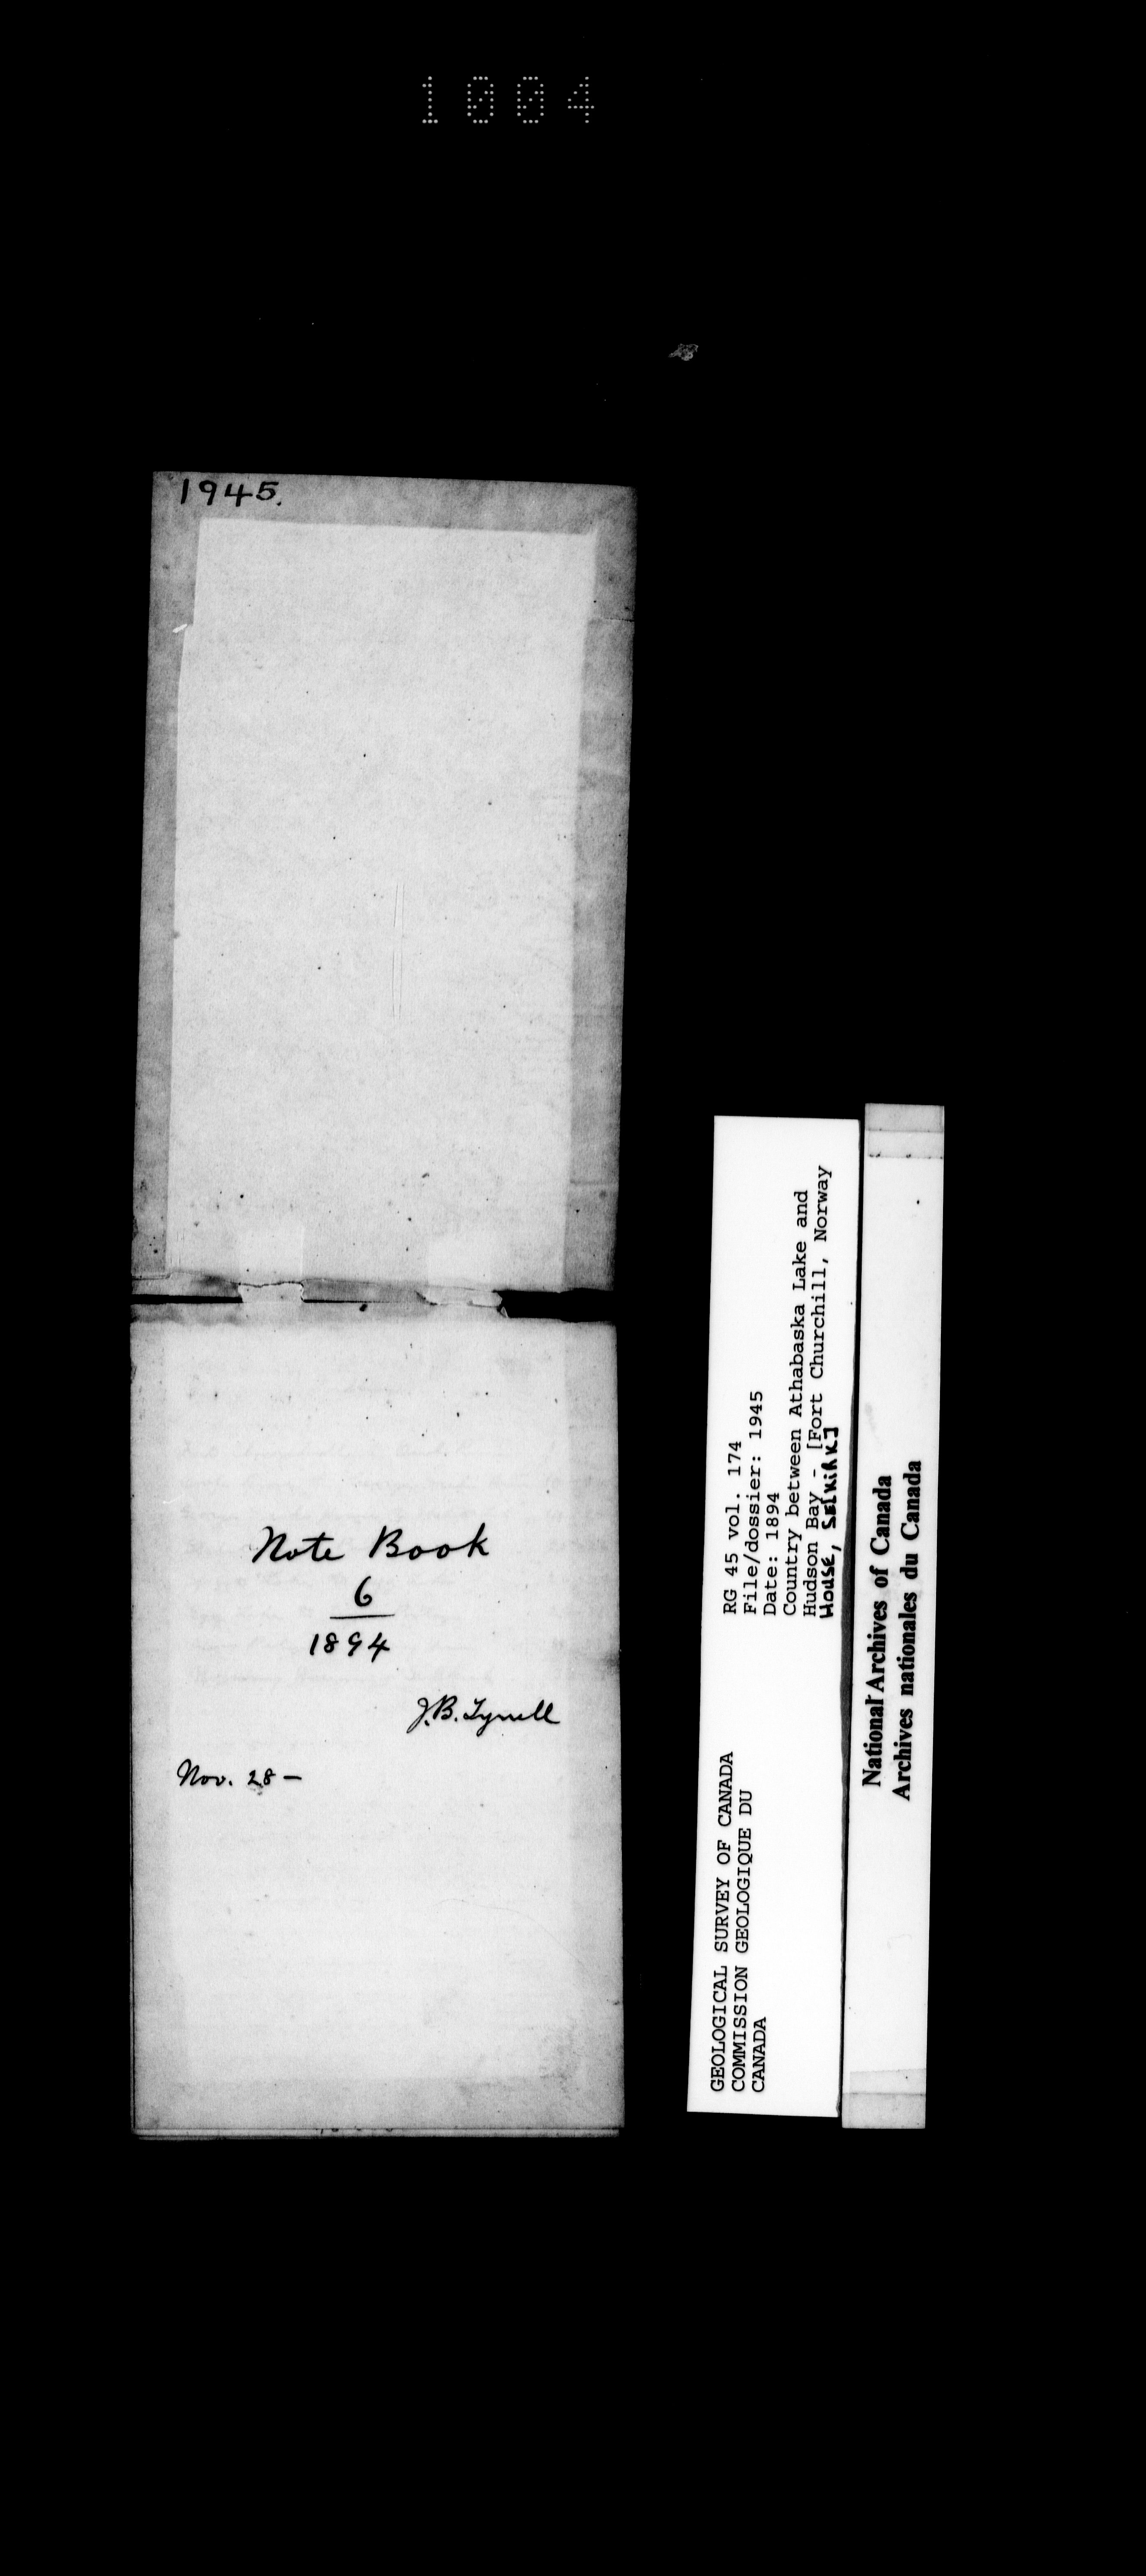 1004
1945.
Note Book
6
1894
J.B. Tyrrell
Nov. 28 –
GEOLOGICAL SURVEY OF CANADA
COMMISSION GEOLOGIQUE DU
CANADA
RG 45 vol. 174
File/dossier: 1945
Date: 1894
Country between Athabaska Lake and
Hudson Bay - [Fort Churchill, Norway
HOUSE, SELKIRK]
National Archives of Canada
Archives nationales du Canada